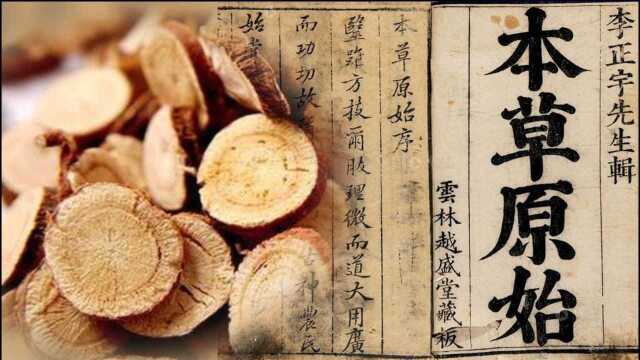 李正宇先生輯
本草原始
雲林越盛堂藏板
本草原始序
醫雖方技爾理微而道大用廣
而功切故神農氏
始